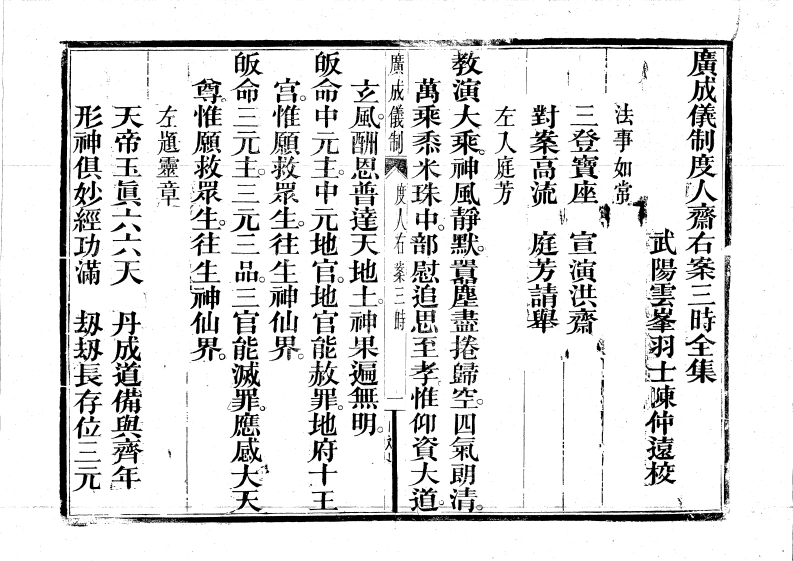 廣成儀制度人齋右案三時全集
武陽雲峯羽士陳仲遠校
法事如常
三登寶座　宣演洪齋
對案高流　庭芳請舉
左入庭芳
教演大乘。神風靜默。囂塵盡捲歸空。四氣朗清。
萬乘黍米珠中。部慰追思至孝。惟仰資大道。
玄風。酬恩普達天地。土神果遍無明。
廣成儀制　度人右案三時　一
皈命中元主。中元地官。地官能赦罪。地府十王
宮。惟願救眾生。往生神仙界。
皈命三元主。三元三品。三官能滅罪。應感大天
尊。惟願救眾生。往生神仙界。
左題靈章
天帝玉眞六六天　丹成道備與齊年
形神俱妙經功滿　刼刼長存位三元